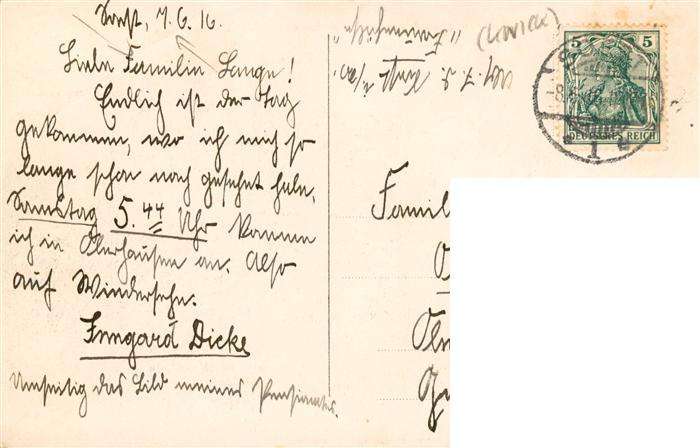 Soest, 7.6.16.
Liebe Familie Lange!
Endlich ist der Tag
gekommen, wo ich mich so
lange schon nach gesehnt habe,
Samstag 5.44 Uhr komme
ich in Oberhausen an. Also
auf Wiedersehn.
Irmgard Dicke
Umseitig das Bild meines Pensionates.
5 5
DEUTSCHES REICH
1
Famil